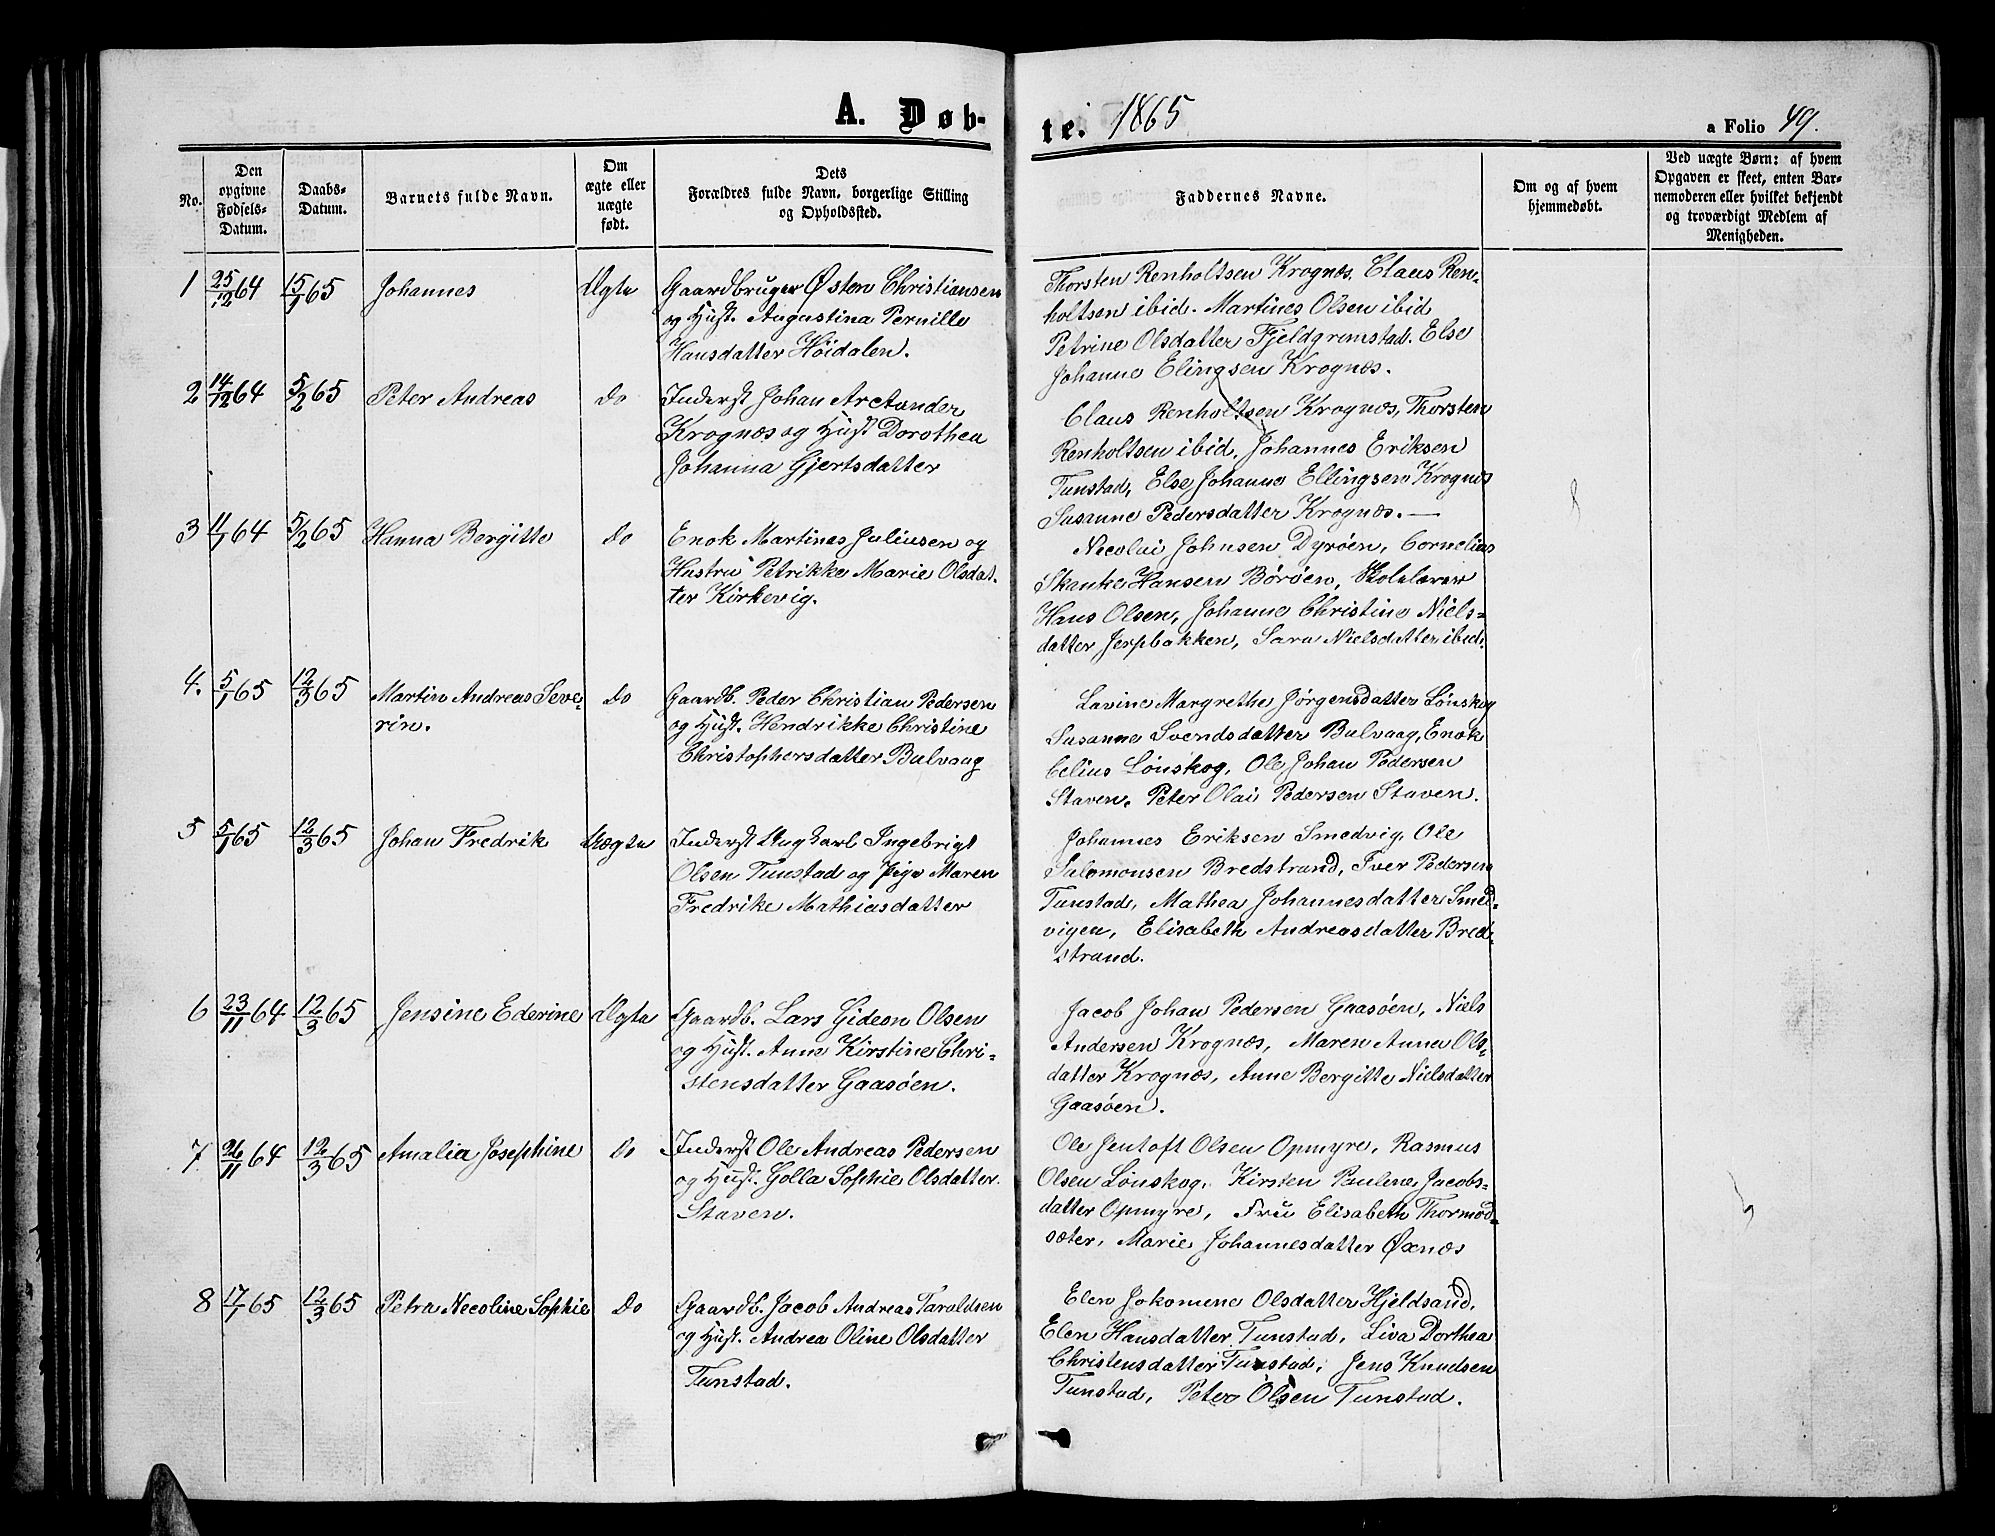 A. Døb-
te. 1865
a Folio 49.
No.
Den opgivne Fødsels-Datum.
Daabs-Datum.
Barnets fulde Navn.
Om ægte eller uægte født.
Dets Forældres fulde Navn, borgerlige Stilling og Opholdssted.
Faddernes Navne.
Om og af hvem hjemmedøbt.
Ved uægte Børn: af hvem Opgaven er skeet, enten Barnemoderen eller hvilket bekjendt og troværdigt Medlem af Menigheden.
1 25/12 64 15/1 65 Johannes Ægte
Gaardbruger Østen Christiansen
og Hust. Augustina Pernille
Hansdatter Höidalen.
Thorsten Renholtsen Krognæs. Claus Ren-
holtsen ibid. Martines Olsen ibid
Petrine Olsdatter Fjeldgrimstad. Else
Johanne Elingsen Krognæs.
2 14/12 64 5/2 65 Peter Andreas Do
Inderst Johan Arctander
Krognæs og Hust Dorothea
Johanna Gjertsdatter
Claus Renholtsen Krognæs, Thorsten
Renholtsen ibid. Johannes Eriksen
Tunstad, Else Johanne Ellingsen Krognæs
Susanne Pedersdatter Krognæs. —
3 11/1 64 5/2 65 Hanna Bergitte Do
Enok Martinas Juliusen og
Hustru Petrikke Marie Olsdat-
ter Kirkevig.
Necolai Johnsen Dyröen, Cornelius
Skanke Hansen Böröen, Skolelærer
Hans Olsen, Johanne Christine Niels-
datter Jerpbakken, Sara Nielsdatter ibid.
4. 5/1 65 12/3 65 Martin Andreas Seve-
rin. Do
Gaardb. Peder Christian Pedersen
og Hust. Hendrikke Christine
Christophersdatter Bulvaag
Lavine Margrethe Jörgensdatter Lönskog
Susanne Svendsdatter Bulvaag, Enok
Celius Lönskog, Ole Johan Pedersen
Staven. Peter Olai Pedersen Staven.
5 5/1 65 12/3 65 Johan Fredrik Uægte
Inderst Ungkarl Ingebrigt
Olsen Tunstad og Pige Maren
Fredrike Mathiasdatter
Johannes Eriksen Smedvig, Ole
Salomonsen Bredstrand, Iver Pedersen
Tunstad, Mathea Johannesdatter Smed-
vigen, Elisabeth Andreasdatter Bred-
strand.
6 23/11 64 12/3 65 Jensine Ederine Ægte
Gaardb. Lars Gideon Olsen
og Hust. Anne Kirstine Chri-
stensdatter Gaasöen.
Jacob Johan Pedersen Gaasöen, Niels
Andersen Krognæs, Maren Anna Ols-
datter Krognæs, Anne Bergitte Nielsdatter
Gaasöen.
7. 26/11 64 12/3 65 Amalia Josephine Do
Inderst Ole Andreas Pedersen
og Hust. Golla Sophie Olsdatter
Staven.
Ole Jentoft Olsen Opmyre, Rasmus
Olsen Lönskog. Kirsten Pauline Jacobs-
datter Opmyre, Fru Elisabeth Thormod-
sæter, Marie Johannesdatter Øxnæs
8 17/1 65 12/3 65 Petra Necoline Sophie Do
Gaardb. Jacob Andreas Taraldsen
og Hust. Andrea Oline Olsdatter
Tunstad.
Elen Jokomine Olsdatter Hjeldsand,
Elen Hansdatter Tunstad, Liva Dorthea
Christensdatter Tunstad, Jens Knudsen
Tunstad, Peter Olsen Tunstad.